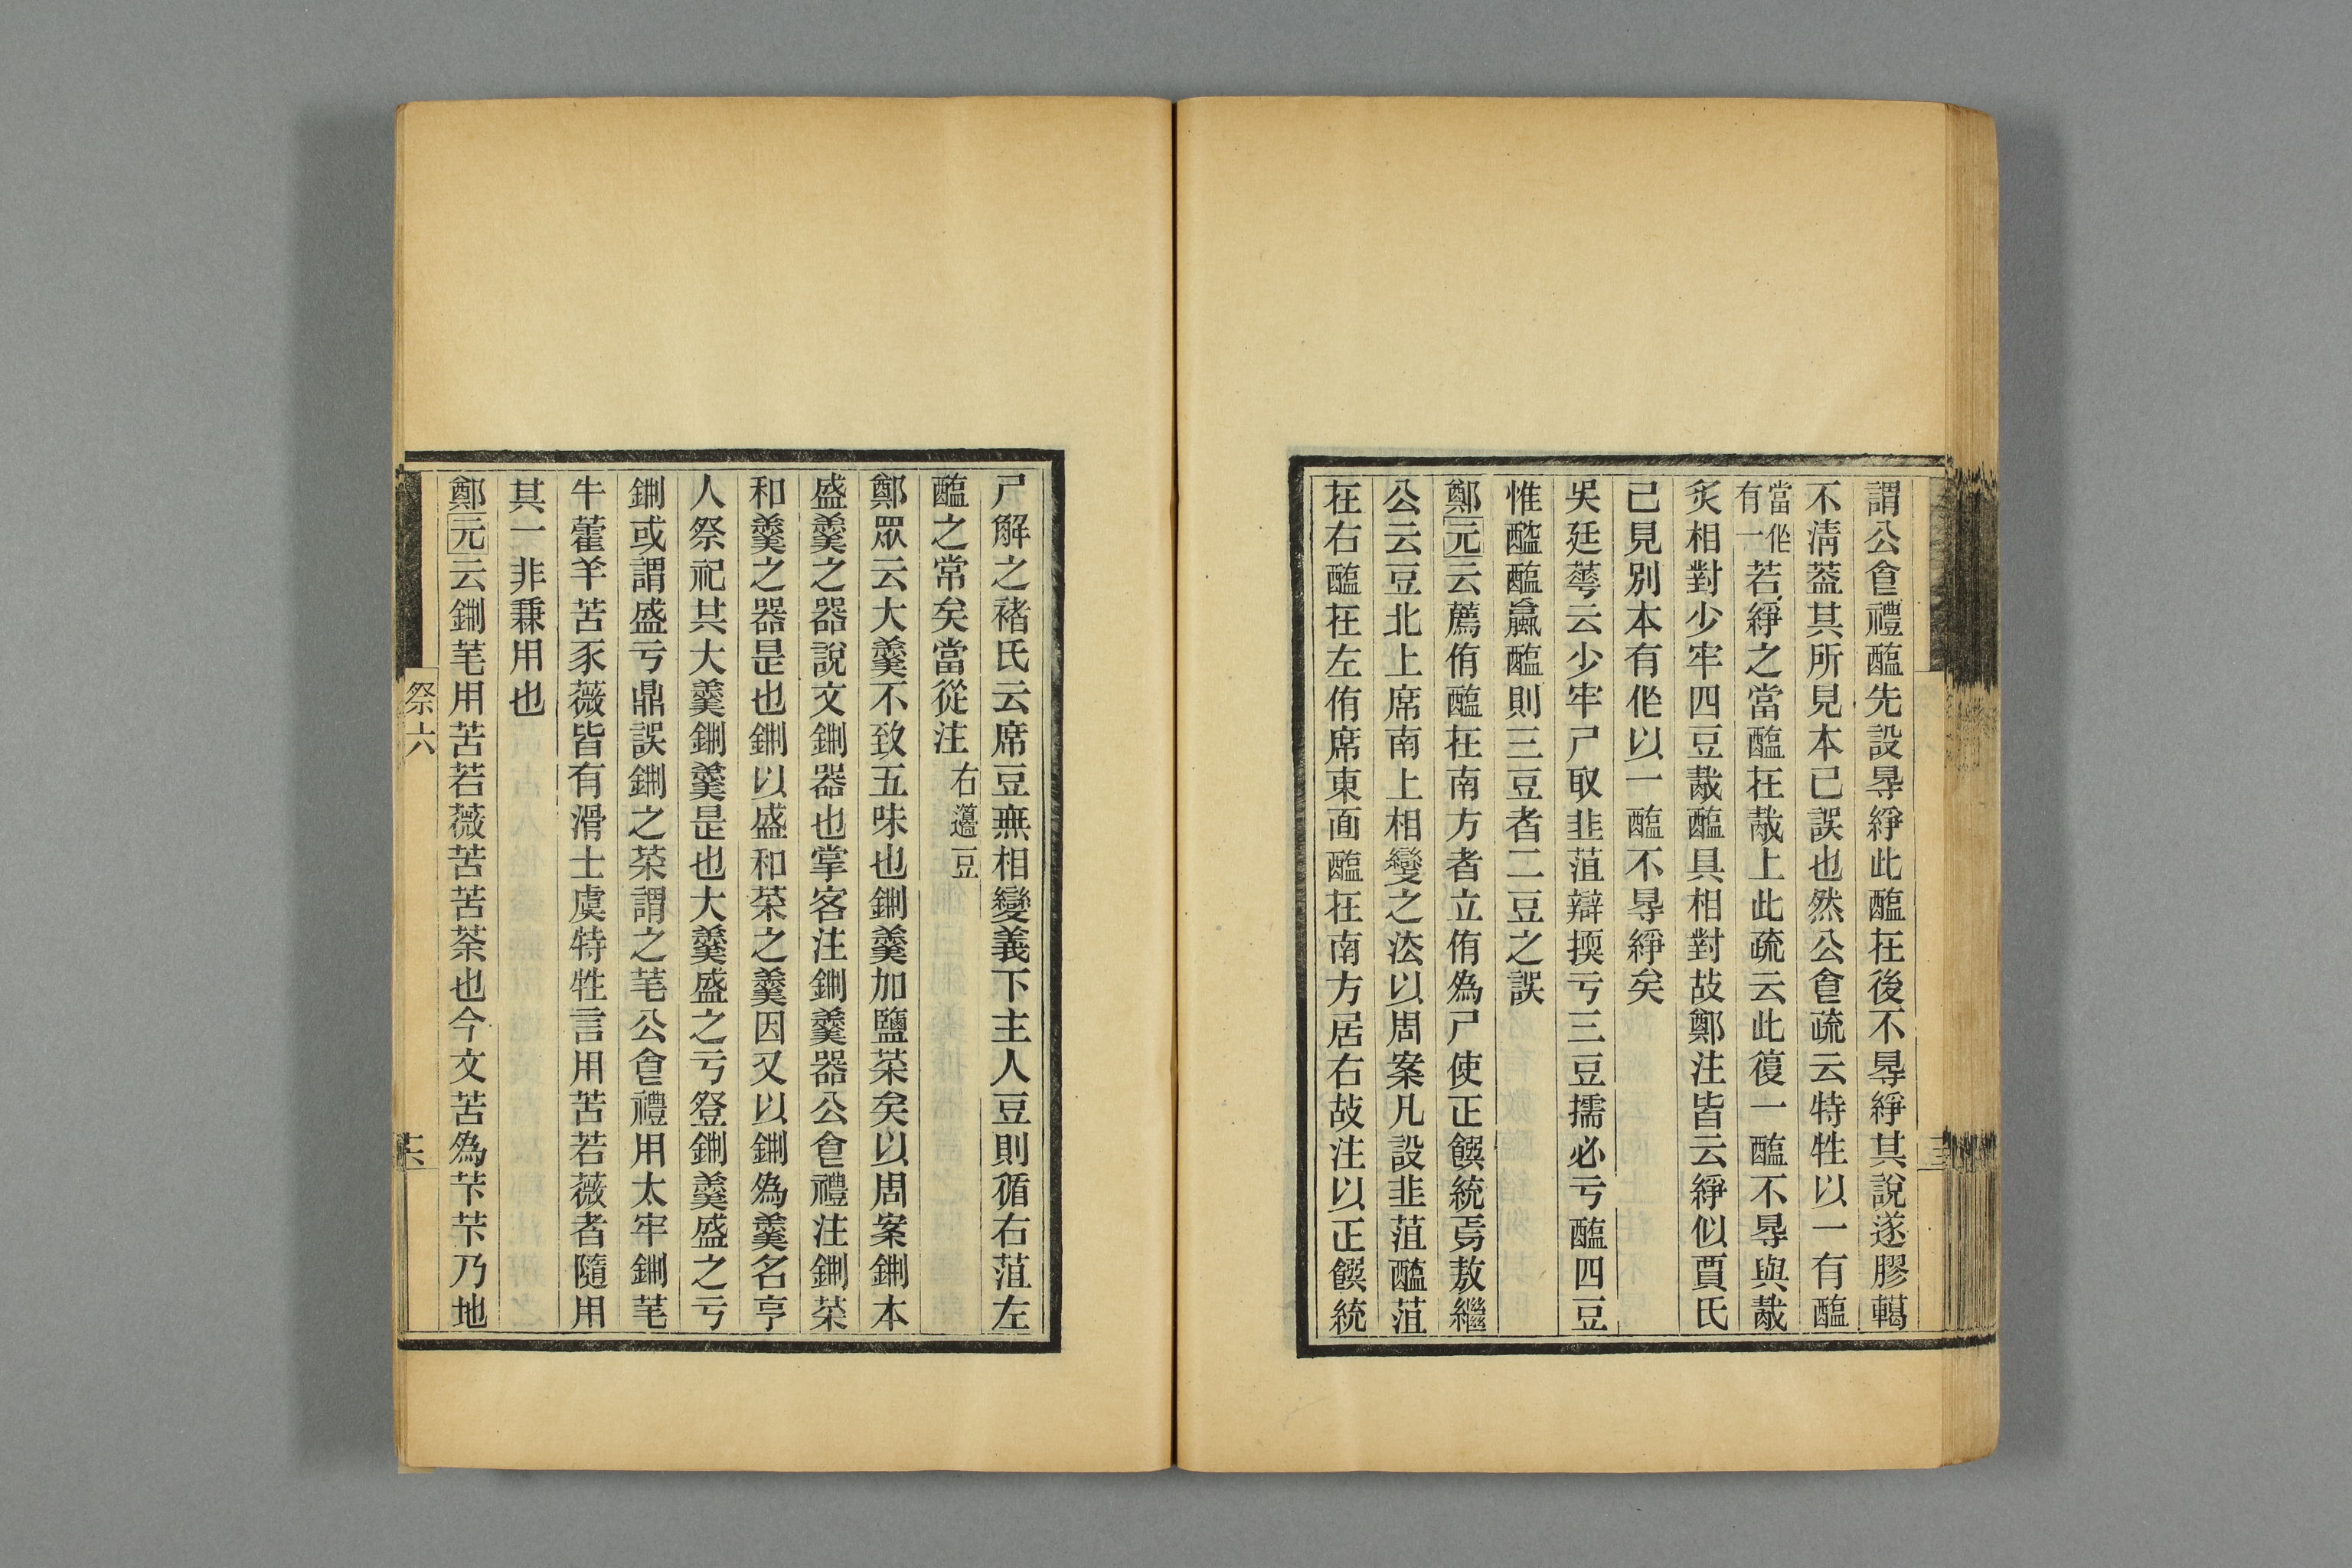 謂公㑹禮醢先設㝵綪此醢在後不㝵綪其說遂膠轕
不淸葢其所見本已誤也然公㑹疏云特牲以一有醢
當作有一若綪之當醢在胾上此疏云此復一醢不㝵與胾
炙相對少牢四豆胾醢具相對故鄭注皆云綪似賈氏
已見別本有作以一醢不㝵綪矣
吳廷華云少牢尸取韭菹辯擩亏三豆擩必亏醢四豆
惟醓醢蠃醢則三豆者二豆之誤
鄭元云薦侑醢在南方者立侑爲尸使正饌統焉敖繼
公云豆北上席南上相變之法以周案凡設韭菹醓菹
在右醢在左侑席東面醢在南方居右故注以正饌統
尸解之褚氏云席豆無相變義下主人豆則循右菹左
醢之常矣當從注 右籩豆
鄭眾云大羹不致五味也鉶羹加鹽菜矣以周案鉶本
盛羹之器說文鉶器也掌客注鉶羹器公㑹禮注鉶菜
和羹之器是也鉶以盛和菜之羹因又以鉶爲羹名亨
人祭祀共大羹鉶羹是也大羹盛之亏登鉶羹盛之亏
鉶或謂盛亏鼎誤鉶之菜謂之芼公㑹禮用太牢鉶芼
牛藿羊苦豕薇皆有滑士虞特牲言用苦若薇者隨用
其一非秉用也
鄭元云鉶芼用苦若薇苦苦荼也今文苦爲芐芐乃地
祭六